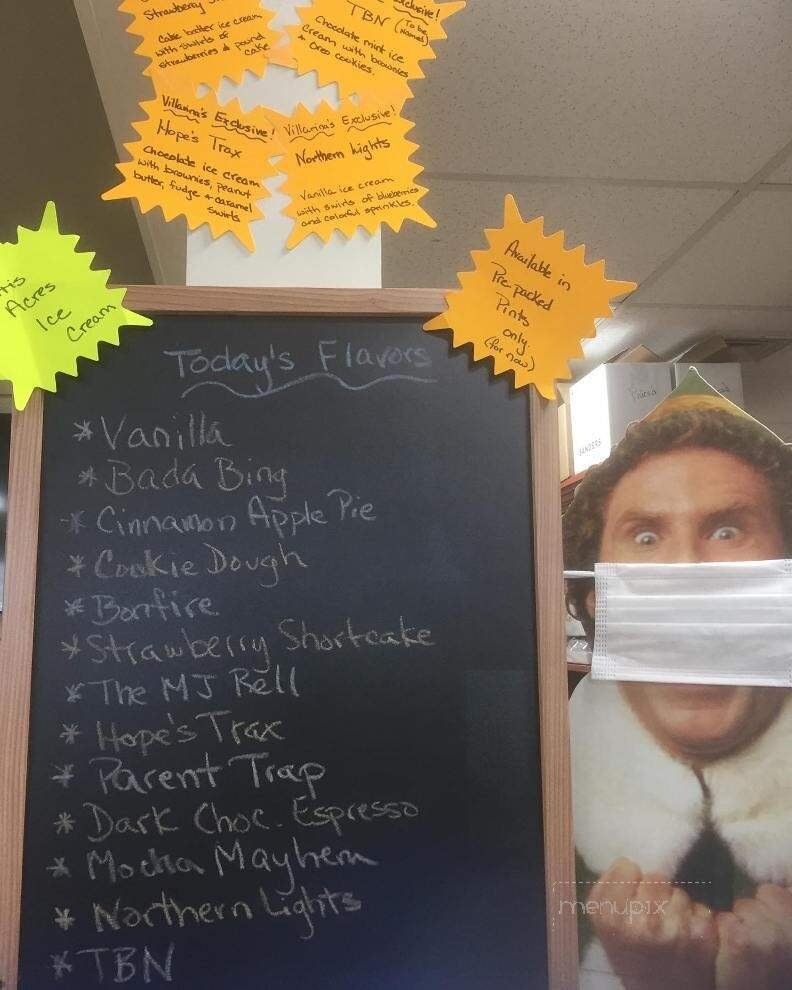 Strawberry
Cake batter ice cream
with swirls of
strawberries & pound
cake
Exclusive!
TBN (To be
Named)
Chocolate mint ice
cream with brownies
& Oreo cookies.
Villarina's Exclusive!
Hope's Trax
Chocolate ice cream
with brownies, peanut
butter, fudge & caramel
swirls
Villarina's Exclusive!
Northern Lights
Vanilla ice cream
with swirls of blueberries
and colorful sprinkles.
Acres
Ice
Cream
Available in
Pre-packed
Pints
only.
(for now)
Today's Flavors
* Vanilla
* Bada Bing
* Cinnamon Apple Pie
* Cookie Dough
* Bonfire
* Strawberry Shortcake
* The MJ Bell
* Hope's Trax
* Parent Trap
* Dark Choc. Espresso
* Mocha Mayhem
* Northern Lights
* TBN
SANDERS
menupix